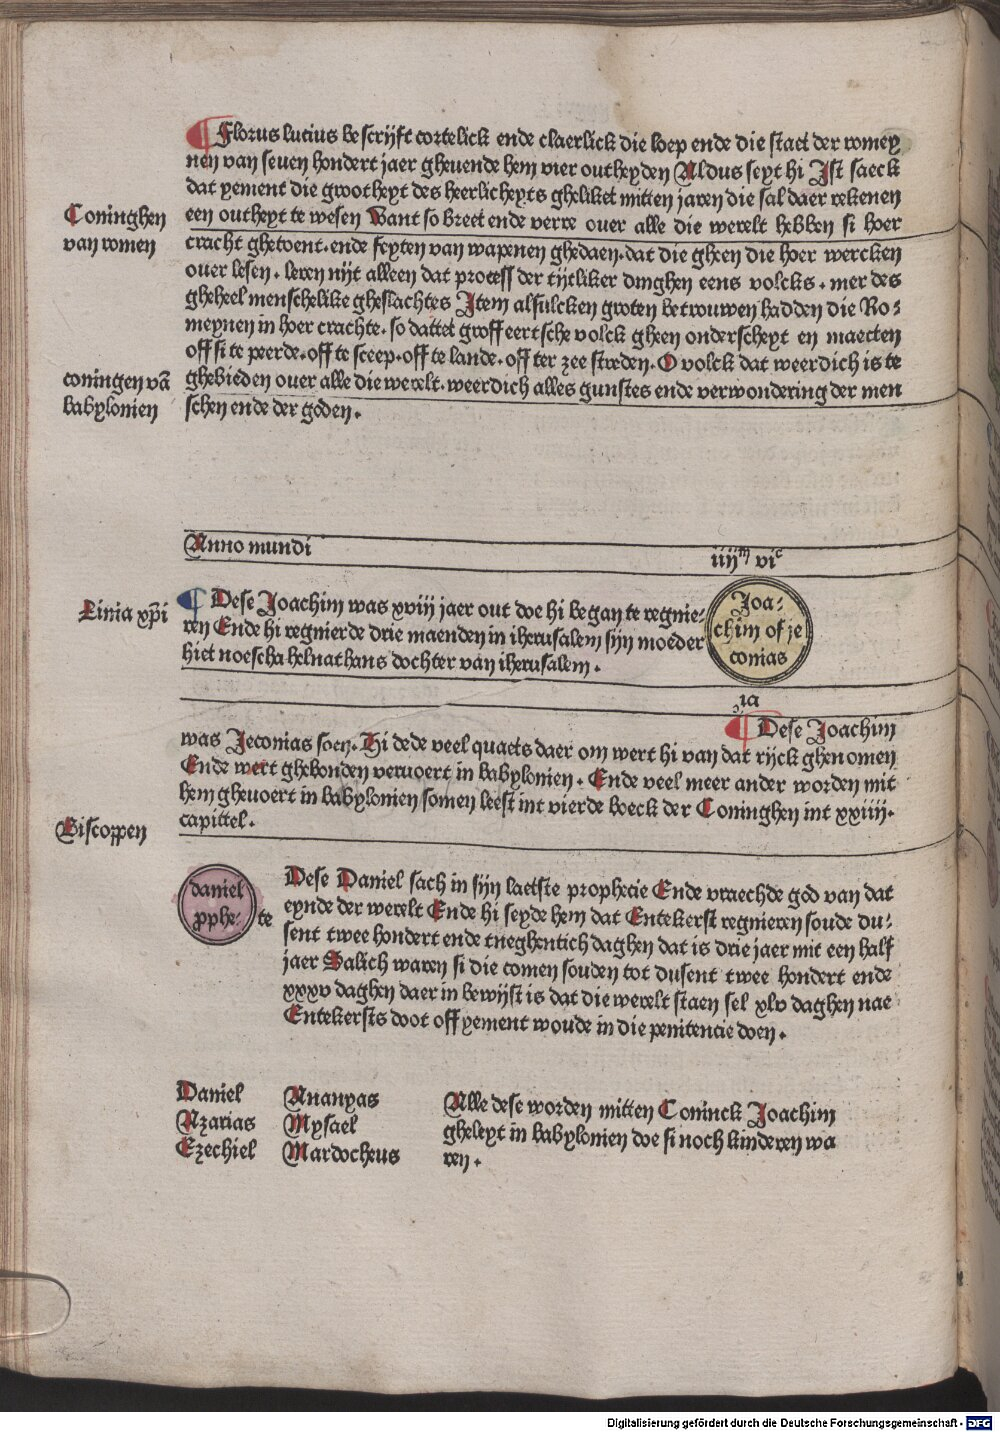 ¶ Florus lucius bescrijft cortelick ende claerlick die loep ende die staet der romey
nen van seuen hondert jaer gheuende hem vier outheyden Aldus seyt hi Ist saeck
dat yement die grootheyt des heerlicheyts gheliket mitten jaren die sal daer rekenen
Coninghen
van romen
een outheyt te wesen Want so breet ende verre ouer alle die werelt hebben si hoer
cracht ghetoent. ende feyten van wapenen ghedaen. dat die gheen die hoer wercken
ouer lesen. leren nijt alleen dat process der tijtliker dinghen eens volcks. mer des
gheheel menschelike gheslachtes Item alsulcken groten betrouwen hadden die Ro-
meynen in hoer crachte. so dattet groff eertsche volck gheen onderscheyt en maecten
off si te peerde. off te sceep. off te lande. off ter zee streden. O volck dat weerdich is te
coningen vā
babylonien
ghebieden ouer alle die werelt. weerdich alles gunstes ende verwondering der men
schen ende der goden.
Anno mundi
iiijᵐ viᶜ
Linia xp̄i
¶ Dese Joachim was xviij jaer out doe hi began te regnie-
ren Ende hi regnierde drie maenden in iherusalem sijn moeder
hiet noescha helnathans dochter van iherusalem.
Joa-
chim of je
conias
¶ Dese Joachim
was Jeconias soen. Hi dede veel quaets daer om wert hi van dat rijck ghenomen
Ende wert ghebonden veruoert in babylonien. Ende veel meer ander worden mit
hem gheuoert in babylonien somen leest int vierde boeck der Coninghen int xxiiij.
capittel.
Biscoppen
daniel
pphe-
te
Dese Daniel sach in sijn laetste prophecie Ende vraechde god van dat
eynde der werelt Ende hi seyde hem dat Entekerst regnieren soude du-
sent twee hondert ende tneghentich daghen dat is drie jaer mit een half
jaer Salich waren si die comen souden tot dusent twee hondert ende
xxxv daghen daer in bewijst is dat die werelt staen sel xlv daghen nae
Entekersts doot off yement woude in die penitencie doen.
Daniel
Azarias
Ezechiel
Ananyas
Mysael
Mardocheus
Alle dese worden mitten Coninck Joachim
gheleyt in babylonien doe si noch kinderen wa
ren.
Digitalisierung gefördert durch die Deutsche Forschungsgemeinschaft - DFG